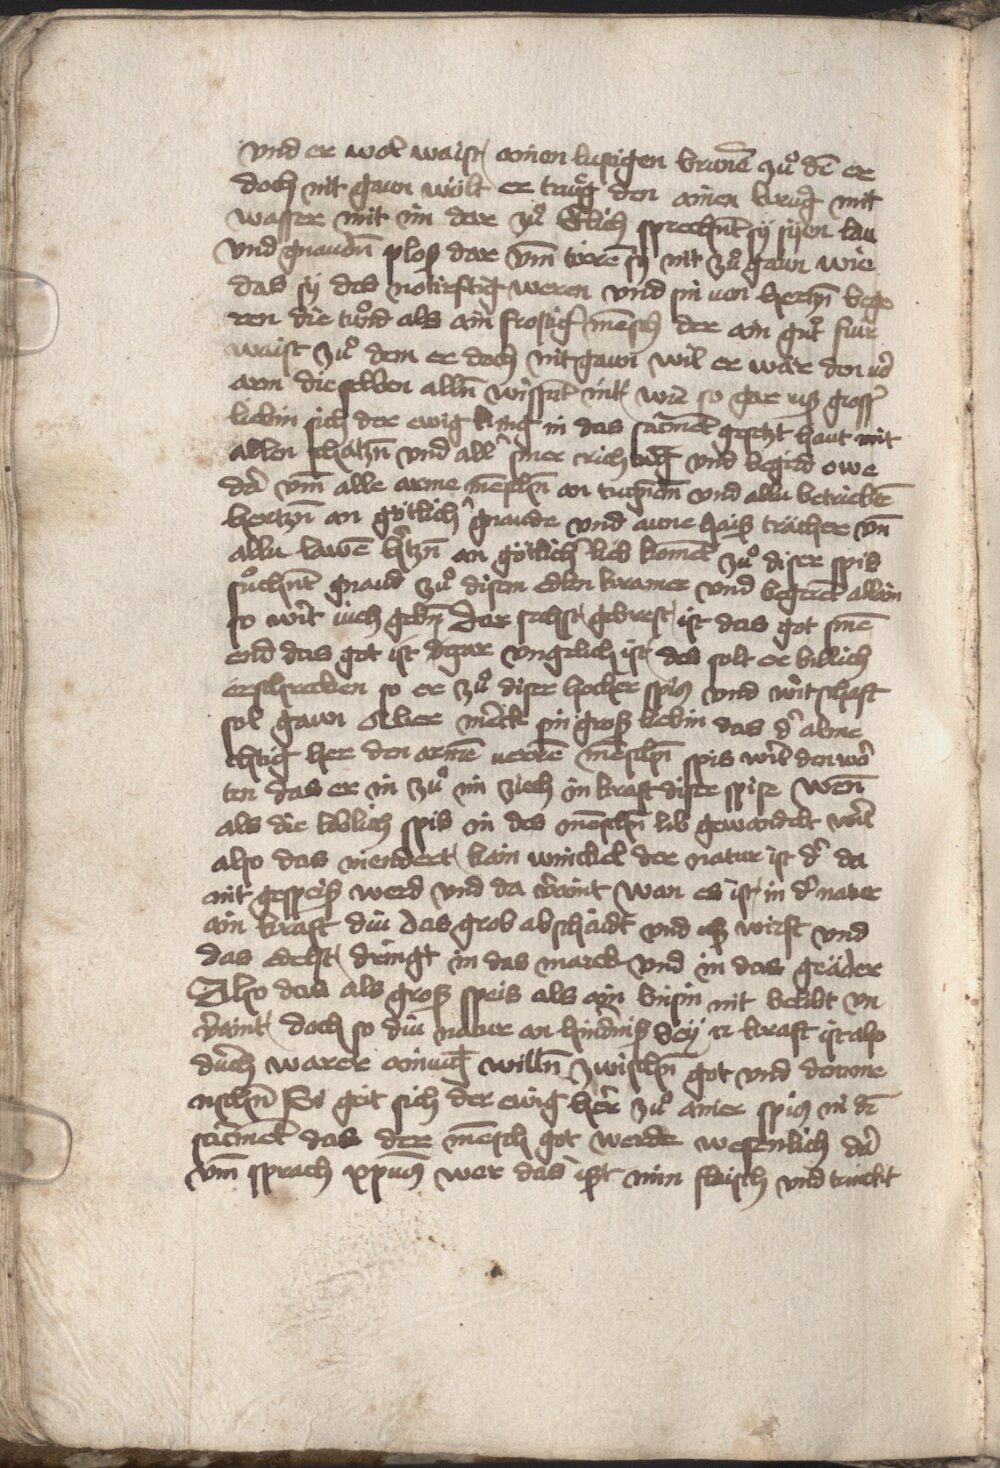 vnd er wol waist ainen lustigen brunē zuͦ dē er
doch nit gaun wölt er truͤg den ainen kruͤg mit
wasser mit im dar zuͦ Etlich sprechn̄t sy syen lau
vnd gnaudn̄ plosß dar vm̄ törrē sy nit zuͦ gaun wie
das sy des notürftig weren vnd sin von hertzn̄ bege
ren die tuͦnd als ain frostig mēsch der ain guͦt fiur
waist zuͦ dem er doch nit gaun wil er wär den vor
arm die selben alln̄ wissent nit wie so gar usß grosser
liebin sich der ewig king in das sacrmēt gesetzt haut mit
allen schätzn̄ vnd all siner rich vnd begird owe
dar vm̄ alle arme mēschn̄ an tugendn̄ vnd allu betriebte
hertzn̄ an götlich gnaude vnd aune haisß trächer vn̄
allu lawē hertzn̄ an götlich lieb komēt zuͦ diser spis
suͦchn̄t gnaud zuͦ disem edlen kramer vnd begerēt allain
so wirt iuch gebn̄ Der sechst gebrest ist das got sinē
end das got ist vngelich ist des solt er billich
erschrecken so er zuͦ diser hocher spis vnd wirtschaft
sol gaun Aber merck sin grosß liebin das der alme
chtig her den armē mēschn̄ spis wil den wor
ten das er in zuͦ im ziech in kraft diser spise wen̄
als die liblich spis in des mēschn̄ lib gewandelt wirt
also das niendert kain winckel der natur ist der da
nit gespeisß werd vnd da veraint wan es ist in der natur
ain kraft diu das grob abschaidt vnd usß wirft vnd
das edelst dringt in das marck vnd in das geäder
Also das als grosß speis als ain nit belibt vn
veraint doch so diu natur an hindernisß sey kraft ist also
durch warer ainung willn̄ zwischn̄ got vnd dem me
nschn̄ So geit sich der ewig herr zuͦ ainer spis in dē
sacrmēt das der mēsch got werde wesenlich dar
vm̄ sprach xpūs wer das isst min flaisch vnd trinckt